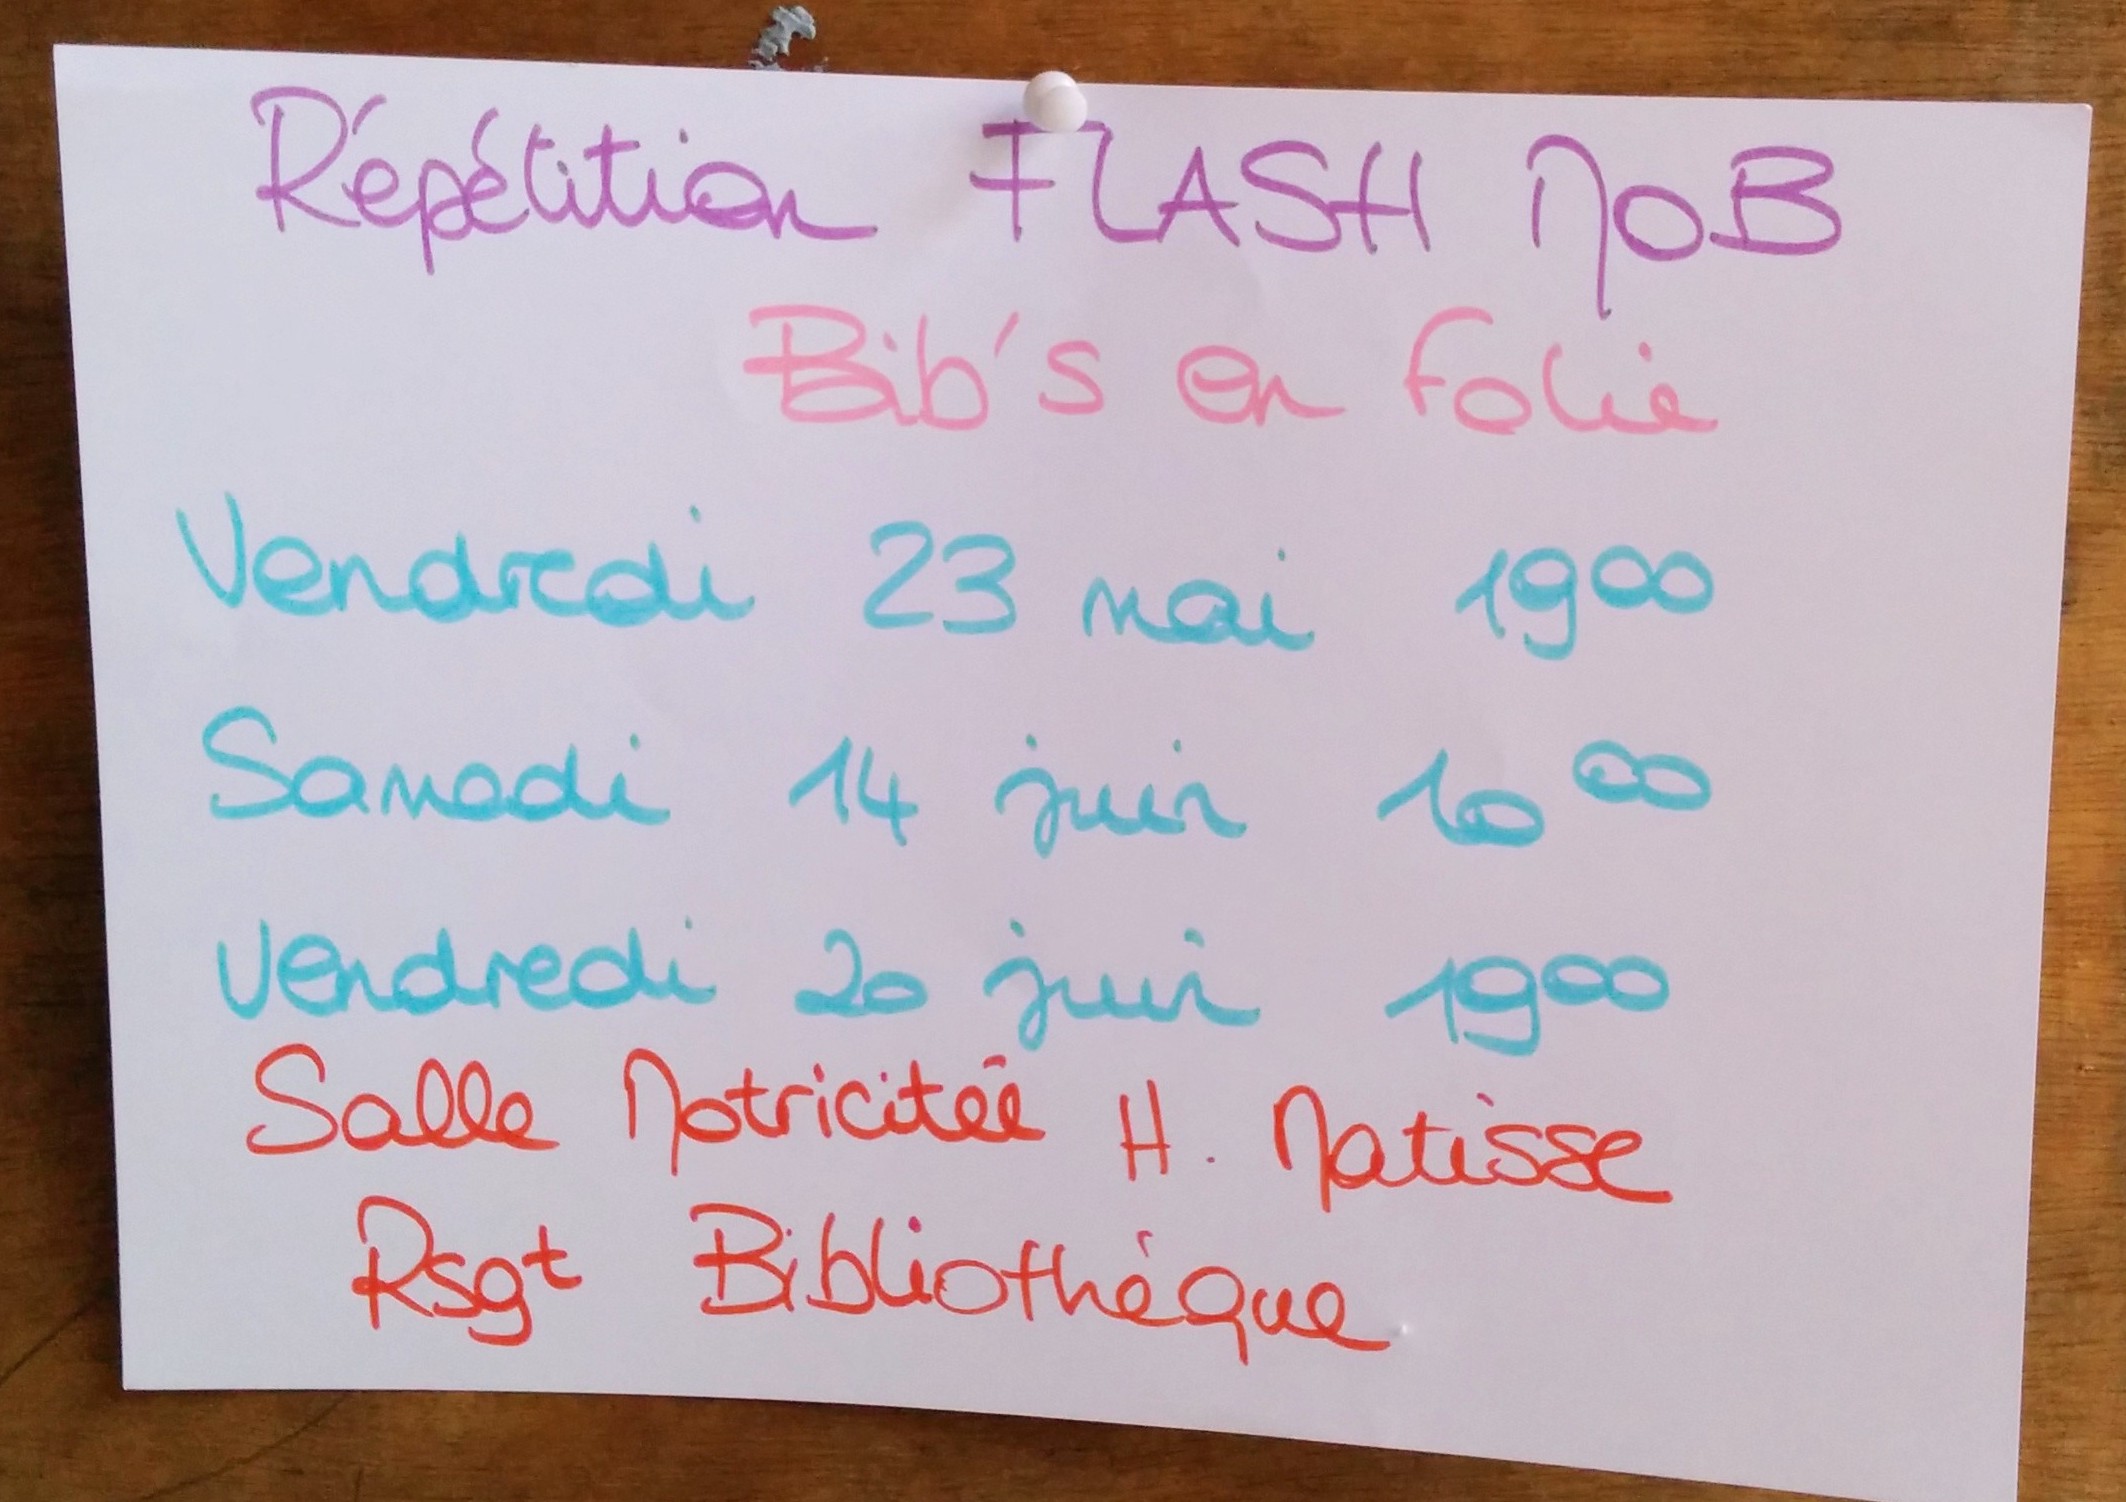 Répétition FLASH MOB
Bib's en Folie
Vendredi 23 mai 19⁰⁰
Samedi 14 juin 10⁰⁰
Vendredi 20 juin 19⁰⁰
Salle Motricitée H. Matisse
Rsgt Bibliothèque